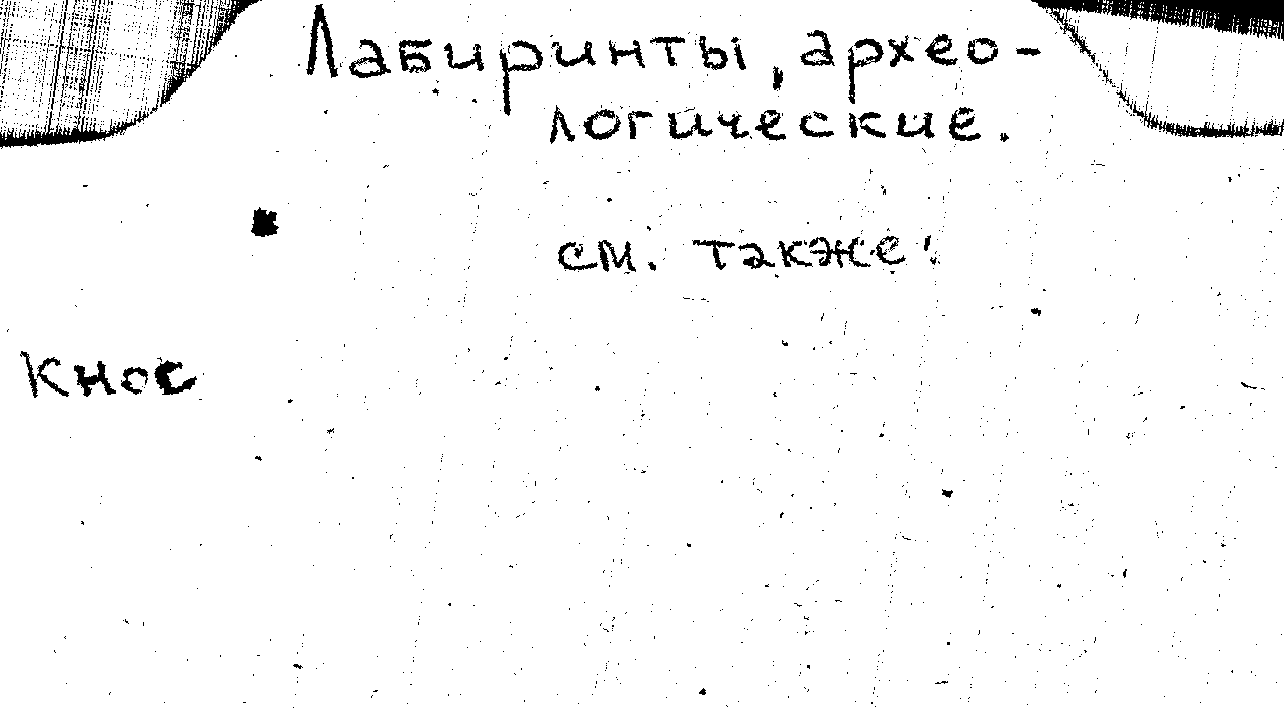 Лабиринты, архео-
логические.
см. также:
Кнос